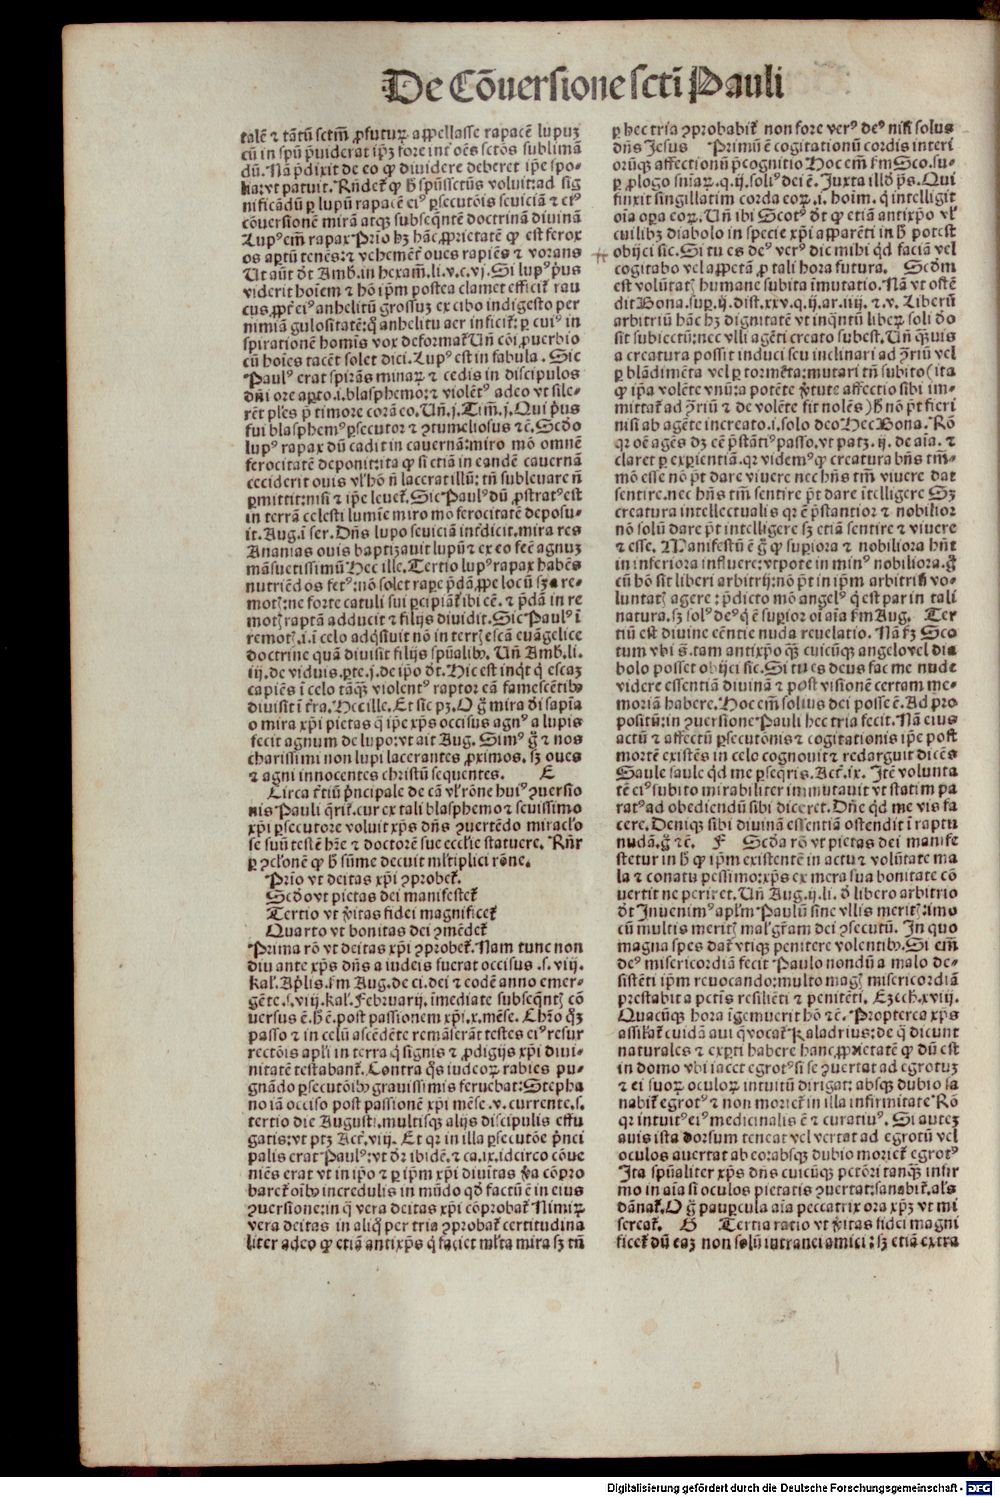 De Cōuersione sctī Pauli
talē ⁊ tātū sctm̄ ꝓfuturꝝ appellasse rapacē lupuꝫ
cū in spū p̄uiderat ip̄ꝫ fore int̄ oēs sctōs sublimā
dū. Nā p̄dixit de eo ꝙ diuidere deberet ip̄e spo-
lia: vt patuit. Rn̄det̄ ꝙ ꝑ hͦ spūssctūs voluit: ad sig
nificādū ꝑ lupū rapacē eiꝰ ꝑsecutōis seuiciā ⁊ eiꝰ
cōuersionē mirā atqꝫ subseq̄ntē doctrinā diuinā
Lupꝰ em̄ rapax Prīo hꝫ hāc ꝓprietatē ꝙ est ferox
os aꝑtū tenēs: ⁊ vehemēt̄ oues rapiēs ⁊ vorans
Ut aūt dt̄ Amb. in hexam̄. li. v. c. vj. Si lupꝰ p̄us
viderit hoīem ⁊ hō ip̄m postea clamet efficit̄ rau
cus, ꝓpt̄ eiꝰ anhelitū grossuꝫ ex cibo indigesto per
nimiā gulositatē: q̄ anhelitu aer inficit̄: ꝑ cuiꝰ in
spirationē homīs vox deformat̄ Un̄ cōi ꝓuerbio
cū hoīes tacēt solet dici. Lupꝰ est in fabula. Sic
Paulꝰ erat spirās minaꝝ ⁊ cedis in discipulos
dn̄i ore aꝑto .i. blasphemo: ⁊ violētꝰ adeo vt sile-
rēt pl̄es p̄ timore corā eo. Un̄ .j. Tim̄. j. Qui p̄us
fui blasphemꝰ ꝑsecutor ⁊ ꝯtumeliosus ⁊c̄. Scd̄o
lupꝰ rapax dū cadit in cauernā: miro mō omnē
ferocitatē deponit: ita ꝙ si etiā in eandē cauernā
ceciderit ouis vl̓ hō nō lacerat illū: tn̄ subleuare nō
ꝑmittit: nisi ⁊ ip̄e leuet̄. Sic Paulꝰ dū ꝓstratꝰ est
in terrā celesti lumīe miro mō ferocitatē deposu-
it. Aug. ī ser. Dn̄s lupo seuiciā int̄dicit. mira res
Ananias ouis baptizauit lupū ⁊ ex eo fec̄ agnuꝫ
māsuetissimū Hec ille. Tertio lupꝰ rapax habēs
nutriēdos fetꝰ: nō solet raꝑe p̄dā ꝓpe locū sꝫ a re-
motꝭ: ne forte catuli sui ꝑcipiāt̄ ibi cē. ⁊ p̄dā in re
motꝭ raptā adducit ⁊ filijs diuidit. Sic Paulꝰ ī
remotꝭ .i. ī celo adq̄siuit nō in terrꝭ escā euāgelice
doctrine quā diuisit filijs spūalibꝰ. Un̄ Amb. li.
iij. de viduis. ꝑte. j. de ip̄o dt̄. Hic est inqt̄ q̄ escaꝫ
capiēs ī celo tāqꝫ violentꝰ raptor eā famescētibꝰ
diuisit ī t̄ra. Hec ille. Et sic pꝫ. O g̊ mira dī sapīa
o mira xp̄i pietas q̄ ip̄e xp̄s occisus agnꝰ a lupis
fecit agnum de lupo: vt ait Aug. Simꝰ g̊ ⁊ nos
charissimi non lupi lacerantes ꝓximos. sꝫ oues
⁊ agni innocentes christū sequentes. E
Circa t̄tiū p̄ncipale de cā vl̓ rōne huiꝰ ꝯuersio
nis Pauli q̄rit̄. cur ex tali blasphemo ⁊ seuissimo
xp̄i ꝑsecutore voluit xp̄s dn̄s ꝯuertēdo miracl̓o
se suū testē hn̄c ⁊ doctorē sue eccl̓ie statuere. Rn̄r
ꝑ ꝯcl̓onē ꝙ hͦ sūme decuit ml̓tiplici rōne.
Prīo vt deitas xp̄i ꝯprobet̄.
Scd̄o vt pietas dei manifestet̄
Tertio vt v̓itas fidei magnificet̄
Quarto vt bonitas dei ꝯmēdet̄
Prima rō vt deitas xp̄i ꝯprobet̄. Nam tunc non
diu ante xp̄s dn̄s a iudeis fuerat occisus .s. viij.
kal̓. Ap̄lis. km̄ Aug. de ci. dei ⁊ eodē anno emer-
gēte .s. viij. kal̓. Februarij. īmediate subseq̄ntꝭ cō
uersus ē. hͦ ē. post passionem xp̄i. x. mēse. Chr̄o q̄ꝫ
passo ⁊ in celū ascēdēte remāserāt testes eiꝰ resur
rectōis apl̓i in terra q̄ signis ⁊ ꝓdigijs xp̄i diui-
nitatē testabant̄. Contra q̄s iudeoꝝ rabies pu-
gnādo ꝑsecutōibꝰ grauissimis feruebat: Stepha
no iā occiso post passionē xp̄i mēse .v. currente .s.
tertio die Augusti. multisqꝫ alijs discipulis effu
gatis: vt ptꝫ Act̄. viij. Et qꝛ in illa ꝑsecutōe p̄nci
palis erat Paulꝰ: vt dr̄ ibidē. ⁊ ca. ix. idcirco cōue
niēs erat vt in ip̄o ⁊ ꝑ ip̄m xp̄i diuitas v̓a cōpro
baret̄ oībꝰ incredulis in mūdo qd̓ factū ē in eius
ꝯuersione: in q̄ vera deitas xp̄i cōprobat̄ Nimiꝝ
vera deitas in aliq̊ per tria ꝯprobat̄ certitudina
liter adeo ꝙ etiā antixp̄s q̄ faciet ml̓ta mira sꝫ tn̄
ꝑ hec tria ꝯprobabit̄ non fore verꝰ deꝰ nisi solus
dn̄s Jesus Primū ē cogitationū cordis interi
orūqꝫ affectionū p̄cognitio Hoc em̄ km̄ Sco. su-
ꝑ ꝓlogo sniaꝝ. q. ij. soliꝰ dei ē. Juxta illd̓ ps̄. Qui
finxit singillatim corda eoꝝ .i. hoīm. q̄ intelligit
oīa oꝑa eoꝝ. Un̄ ibi Scotꝰ dt̄ ꝙ etiā antixpo vl̓
cuilibꝫ diabolo in specie xp̄i apparēti in hͦ potest
obijci sic. Si tu es deꝰ verꝰ dic mihi qd̓ faciā vel
cogitabo vel appetā ꝓ tali hora futura. Scd̓m
est volūtatꝭ humane subita īmutatio. Nā vt ostē
dit Bona. suꝑ. ij. dist. xxv. q. ij. ar. iiij. ⁊ .v. Liberū
arbitriū hāc hꝫ dignitatē vt inq̄ntū liberꝝ soli deo
sit subiectū: nec vlli agēti creato subest. Un̄ q̄uis
a creatura possit induci seu inclinari ad ꝯtrariū vel
ꝑ blādimēta vel ꝑ tormēta: mutari tn̄ subito (ita
ꝙ ip̄a volēte vnū: a potēte v̓tute affectio sibi im-
mittat̄ ad ꝯtrariū ⁊ de volēte fit nolēs) hͦ nō pt̄ fieri
nisi ab agēte increato .i. solo deo Hec Bona. Rō
qꝛ oē agēs dꝫ cē p̄stātiꝰ passo. vt patꝫ. ij. de aīa. ⁊
claret ꝑ exꝑientiā. qꝛ videmꝰ ꝙ creatura hn̄s tm̄-
mō esse nō pt̄ dare viuere nec hn̄s tm̄ viuere dat
sentire. nec hn̄s tm̄ sentire pt̄ dare ītelligere Sꝫ
creatura intellectualis qꝛ ē p̄stantior ⁊ nobilior
nō solū dare pt̄ intelligere sꝫ etiā sentire ⁊ viuere
⁊ esse. Manifestū ē g̊ ꝙ suꝑiora ⁊ nobiliora hn̄t
in inferiora influere: vtpote in minꝰ nobiliora. g̊
cū hō sit liberi arbitrij: nō pt̄ in ip̄m arbitriū vo-
luntatꝭ agere: p̄dicto mō angelꝰ q̄ est par in tali
natura. sꝫ solꝰ deꝰ q̄ ē suꝑior oi aīa km̄ Aug. Ter
tiū est diuine eēntie nuda reuelatio. Nā kꝫ Sco
tum vbi s̄. tam antixpo qꝫ cuicūqꝫ angelo vel dia
bolo posset obijci sic. Si tu es deus fac me nude
videre essentiā diuinā ⁊ post visionē certam me-
moriā habere. Hoc em̄ solius dei posse ē. Ad pro
positū: in ꝯuersione Pauli hec tria fecit. Nā eius
actū ⁊ affectū ꝑsecutōnis ⁊ cogitationis ip̄e post
mortē existēs in celo cognouit ⁊ redarguit dicēs
Saule saule qd̓ me ꝑseq̄ris. Act̄. ix. Itē volunta
tē eiꝰ subito mirabiliter immutauit vt statim pa
ratꝰ ad obediendū sibi diceret. Dn̄e qd̓ me vis fa
cere. Deniqꝫ sibi diuinā essentiā ostendit ī raptu
nudā. g̊ ⁊c̄. F Scd̓a rō vt pietas dei manife
stetur in hͦ ꝙ ip̄m existentē in actu ⁊ volūtate ma
la ⁊ conatu pessimo: xp̄s ex mera sua bonitate cō
uertit ne periret. Un̄ Aug. ij. li. d̓ libero arbitrio
dt̄ Inuenimꝰ apl̓m Paulū sine vllis meritꝭ: imo
cū multis meritꝭ mal̓ gr̄am dei ꝯsecutū. In quo
magna spes dat̄ vtiqꝫ penitere volentibꝰ. Si em̄
deꝰ misericordiā fecit Paulo nondū a malo de-
sistēti ip̄m reuocando: multo magꝭ misericordiā
prestabit a pctis̄ resiliēti ⁊ penitēti. Ezech̄. xviij.
Quacūqꝫ hora īgemuerit hō ⁊c̄. Propterea xp̄s
assilat̄ cuidā aui q̄ vocat̄ Kaladrius: de q̄ dicunt
naturales ⁊ exꝑti habere hanc ꝓprietatē ꝙ dū est
in domo vbi iacet egrotꝰ si se ꝯuertat ad egrotuꝫ
⁊ ei suoꝝ oculoꝝ intuitū dirigat: absqꝫ dubio sa
nabit̄ egrotꝰ ⁊ non moriet̄ in illa infirmitate Rō
qꝛ intuitꝰ eiꝰ medicinalis ē ⁊ curatiuꝰ. Si autez
auis ista dorsum teneat vel vertat ad egrotū vel
oculos auertat ab eo absqꝫ dubio moriet̄ egrotꝰ
Ita spūaliter xp̄s dn̄s cuicūqꝫ pctōri tanqꝫ infir
mo in aīa si oculos pietatis ꝯuertat: sanabit̄. al̓s
dānat̄. O g̊ pauꝑcula aīa peccatrix ora xp̄ꝫ vt mi
sereat̄. G Tertia ratio vt v̓itas fidei magni
ficet̄ dū eaꝫ non solū intranei amici: sꝫ etiā extra
Digitalisierung gefördert durch die Deutsche Forschungsgemeinschaft - DFG